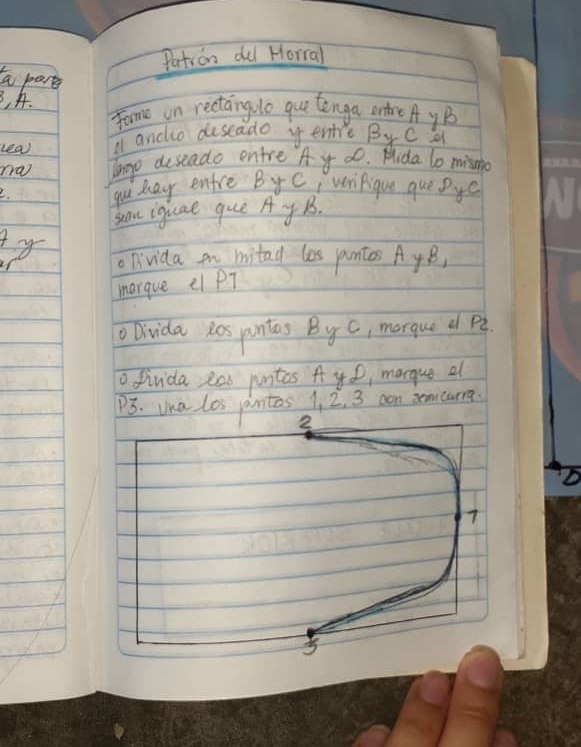 ta parte
B, A.
Patrón del Morral
Forme un rectángulo que tenga entre A y B
el ancho deseado y entre B y C el
largo deseado entre A y D. Mida lo mismo
que hay entre B y C, verifique que D y C
sean igual que A y B.
o Divida en mitad los puntos A y B,
marque el P1
o Divida los puntos B y C, marque el P2.
o Divida los puntos A y D, marque el
P3. Una los puntos 1, 2, 3 con semicurva.
2
1
3
D